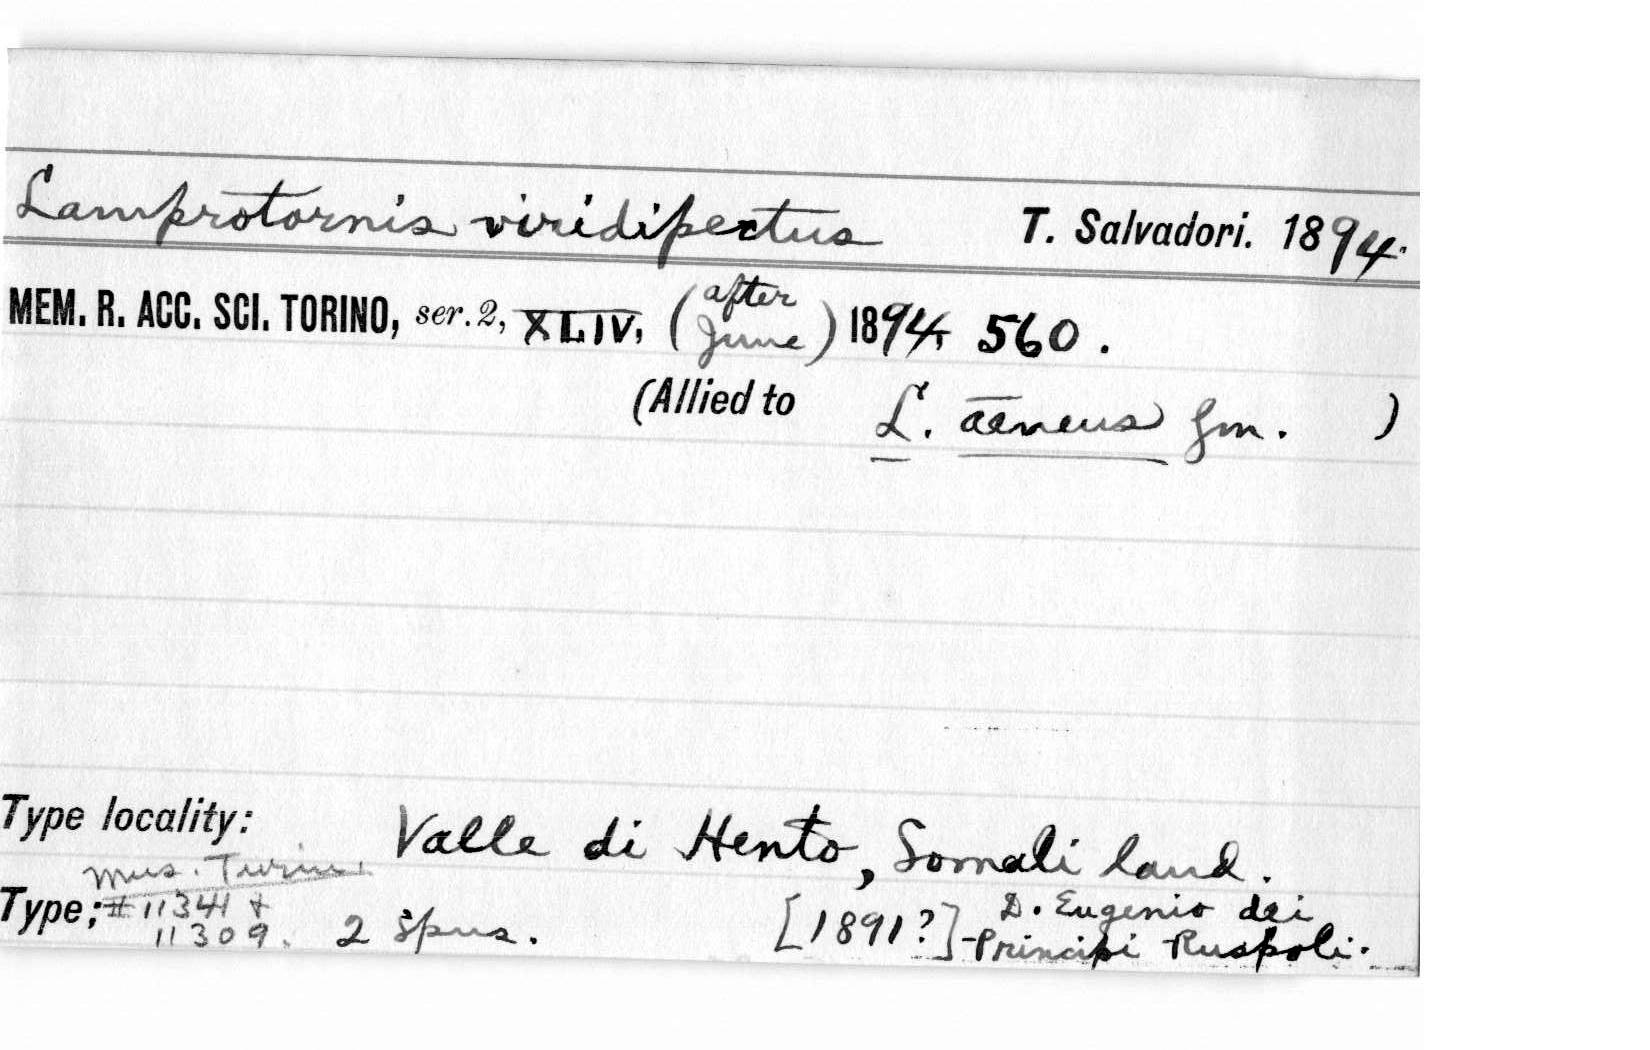 Lamprotornis viridipectus T. Salvadori. 1894.
MEM. R. ACC. SCI. TORINO, ser. 2, XLIV, (after June) 1894, 560.
(Allied to L. aeneus Gm. )
Type locality: Valle di Hento, Somali land.
Mus. Turin.
Type; #11341 + 11309. 2 spns. [1891?] D. Eugenio dei Principi Ruspoli.